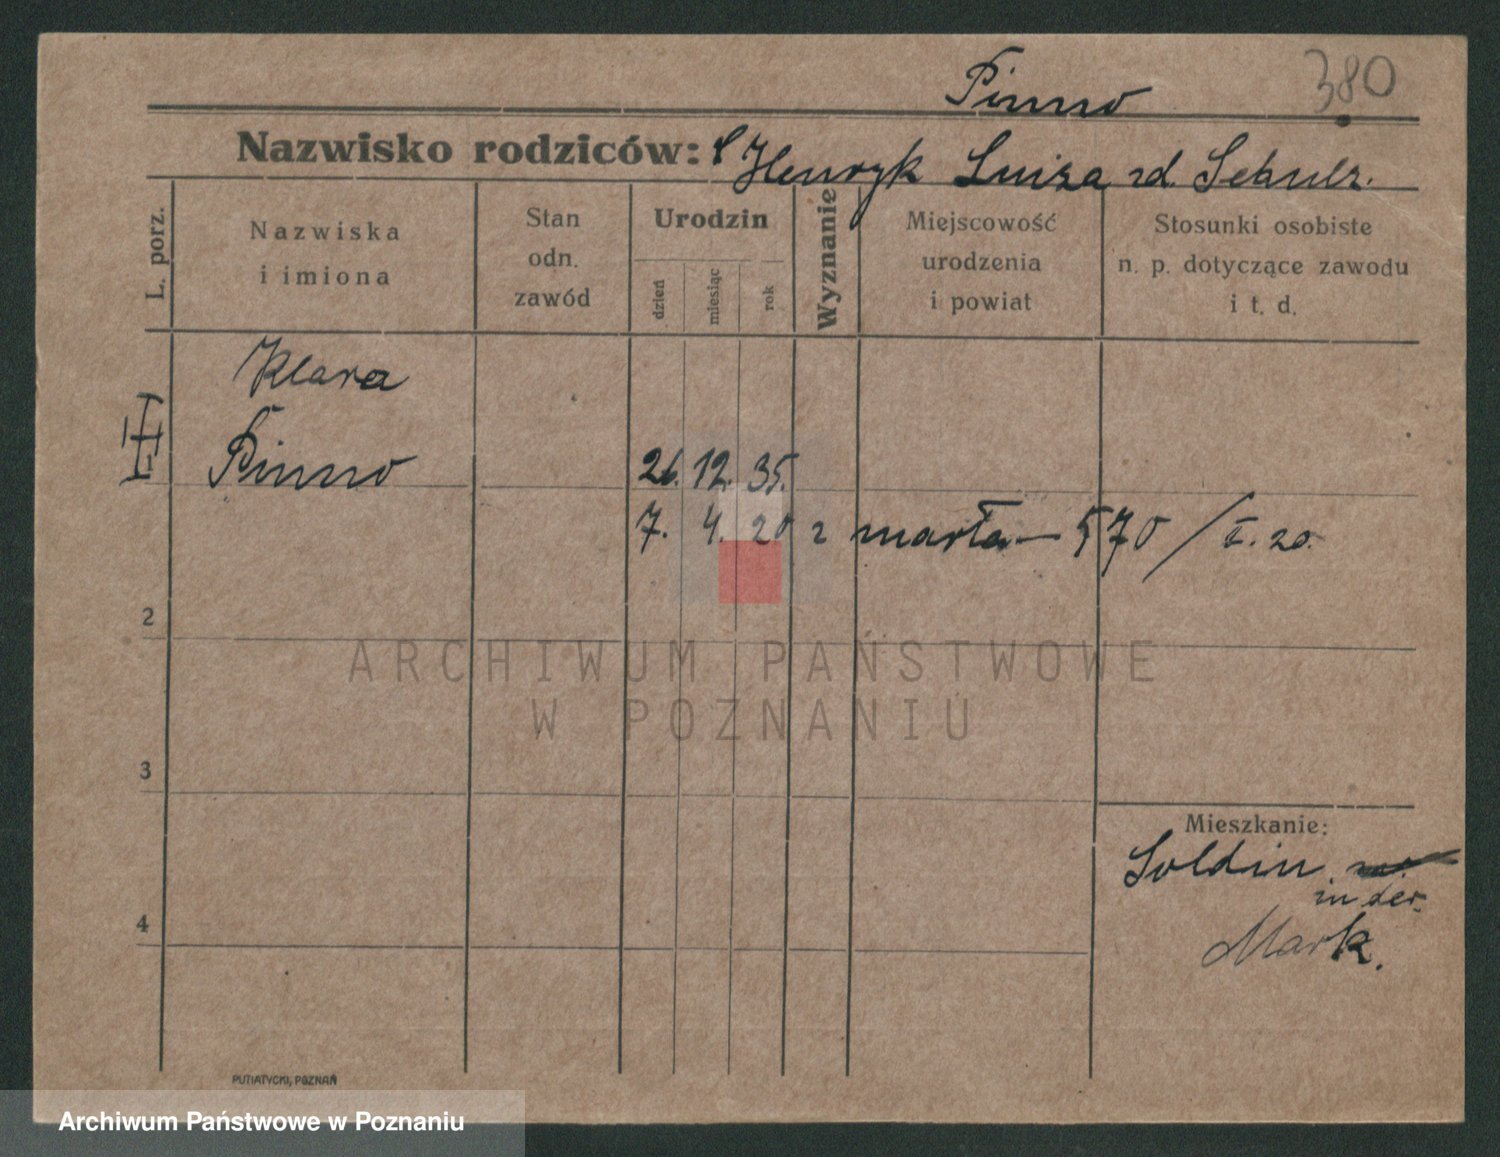 Pinno 380
Nazwisko rodziców: Henryk Luiza zd. Schulz.
L. porz.
Nazwiska
i imiona
Stan
odn.
zawód
Urodzin
dzień
miesiąc
rok
Wyznanie
Miejscowość
urodzenia
i powiat
Stosunki osobiste
n. p. dotyczące zawodu
i t. d.
Klara
Pinno 26. 12. 35.
7. 4. 20 zmarła — 570/I. 20.
2
3
4
Mieszkanie:
Soldin
in der
Mark.
ARCHIWUM PAŃSTWOWE
W POZNANIU
PUTIATYCKI, POZNAŃ
Archiwum Państwowe w Poznaniu